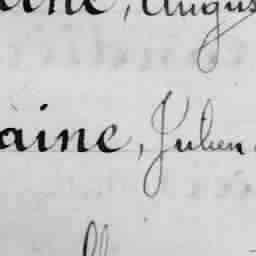 aine, Augus
aine, Julien